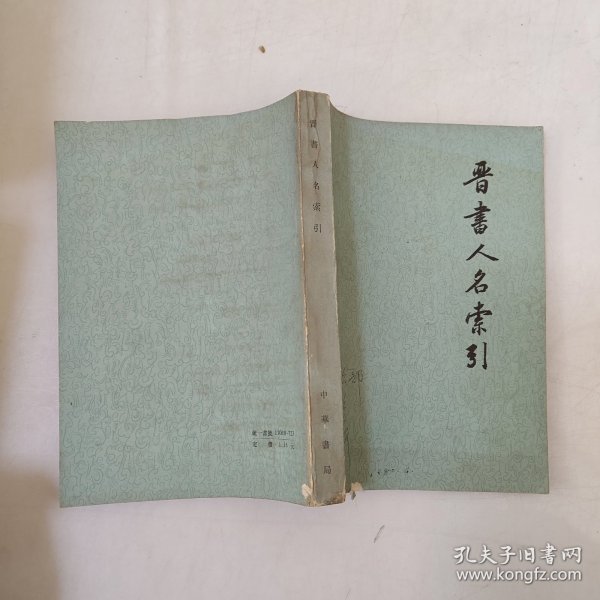 晋書人名索引
晋書人名索引
中華書局
統一書號：11018·721
定價：1.15元
孔夫子旧书网
www.kongfz.com